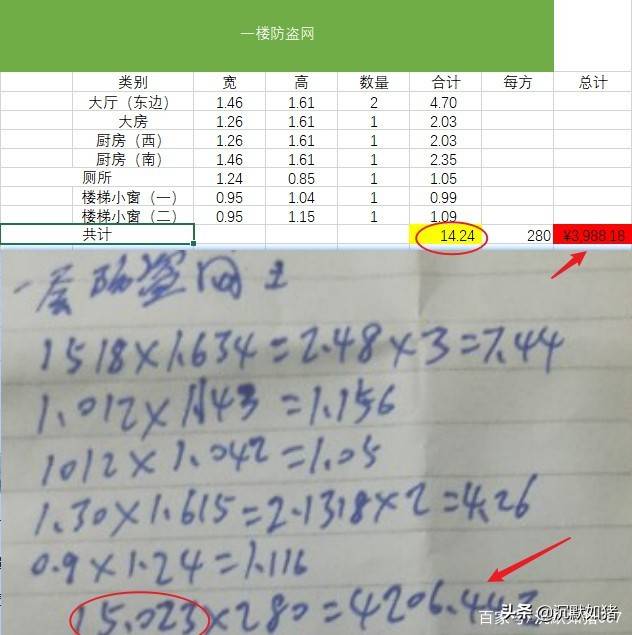 一楼防盗网
类别 宽 高 数量 合计 每方 总计
大厅（东边） 1.46 1.61 2 4.70
大房 1.26 1.61 1 2.03
厨房（西） 1.26 1.61 1 2.03
厨房（南） 1.46 1.61 1 2.35
厕所 1.24 0.85 1 1.05
楼梯小窗（一） 0.95 1.04 1 0.99
楼梯小窗（二） 0.95 1.15 1 1.09
共计 14.24 280 ¥3,988.18
一层防盗网
1518×1.634=2.48×3=7.44
1.012×1.143=1.156
1012×1.042=1.05
1.30×1.615=2.1318×2=4.26
0.9×1.24=1.116
15.023×280=4206.44
头条@沉默如猪